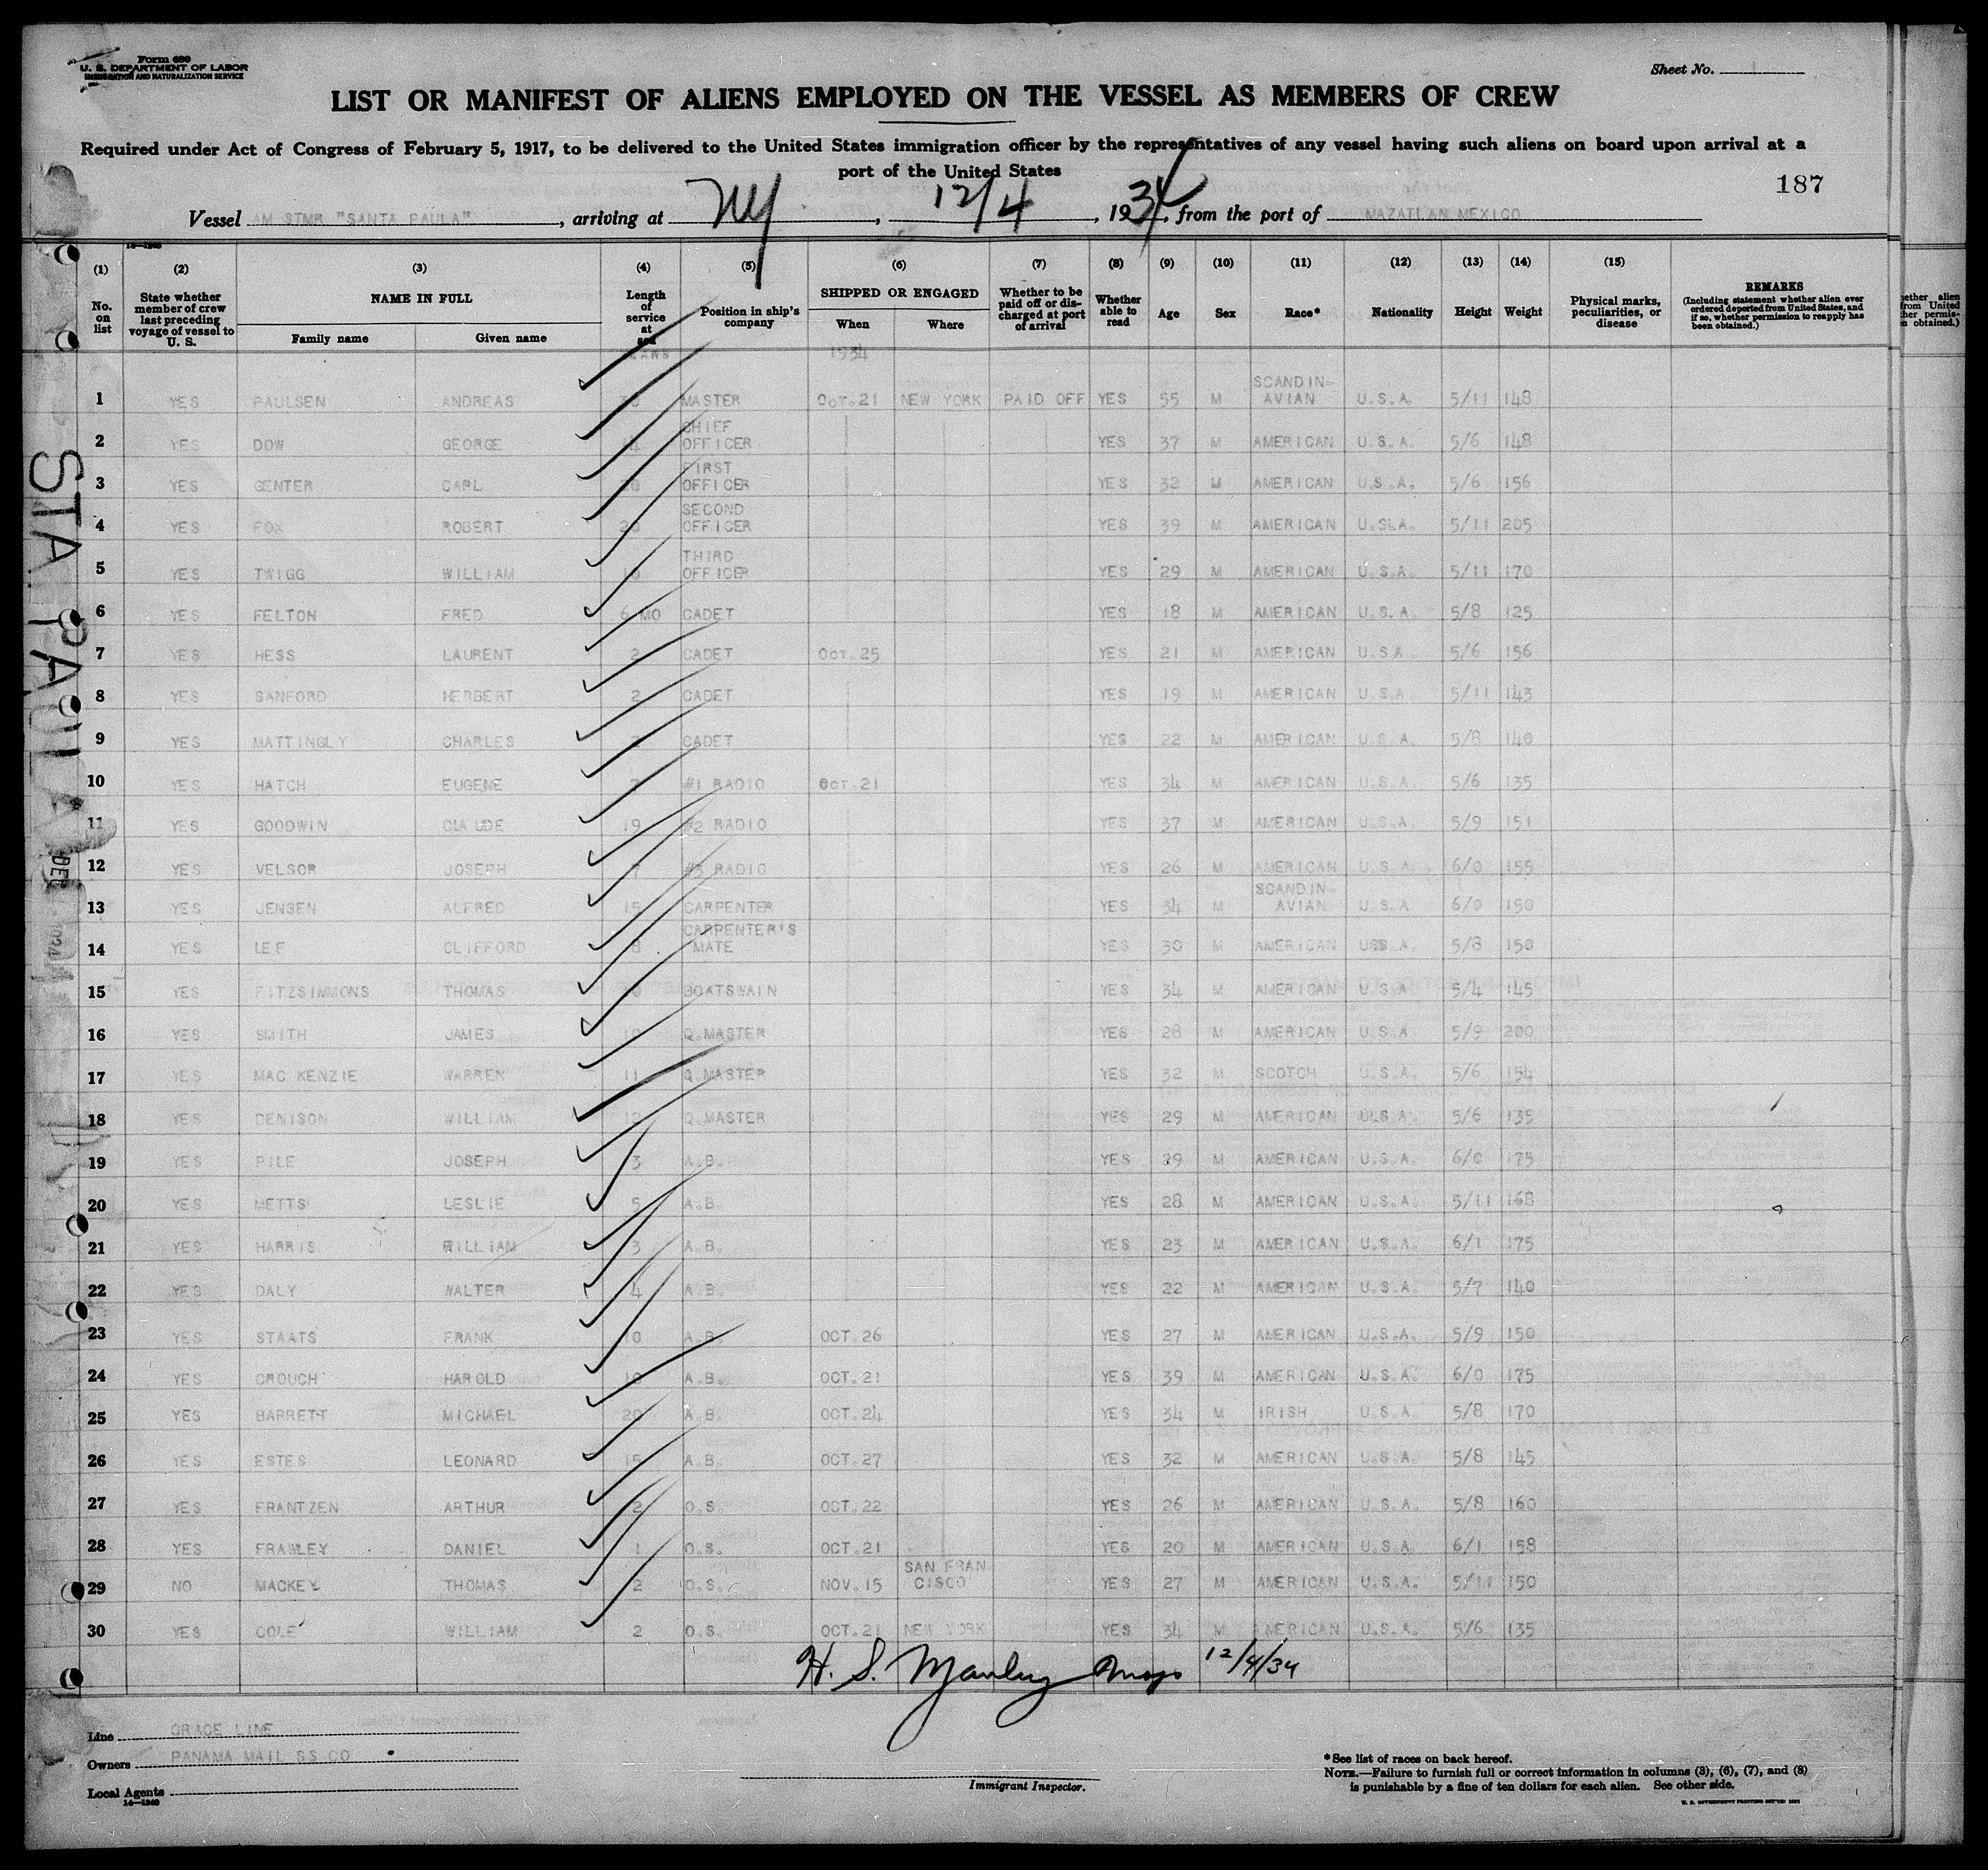 Form 689
U. S. DEPARTMENT OF LABOR
IMMIGRATION AND NATURALIZATION SERVICE
Sheet No. 1
LIST OR MANIFEST OF ALIENS EMPLOYED ON THE VESSEL AS MEMBERS OF CREW
Required under Act of Congress of February 5, 1917, to be delivered to the United States immigration officer by the representatives of any vessel having such aliens on board upon arrival at a
port of the United States
187
Vessel AM STMR "SANTA PAULA", arriving at NY, 12/4, 1934, from the port of MAZATLAN MEXICO
(1) (2) (3) (4) (5) (6) (7) (8) (9) (10) (11) (12) (13) (14) (15)
No. on list State whether member of crew last preceding voyage of vessel to U. S. NAME IN FULL Family name Given name Length of service at sea Position in ship's company SHIPPED OR ENGAGED When Where Whether to be paid off or discharged at port of arrival Whether able to read Age Sex Race* Nationality Height Weight Physical marks, peculiarities, or disease REMARKS (Including statement whether alien ever ordered deported from United States, and if so, whether permission to reapply has been obtained.)
YEARS 1934
1 YES PAULSEN ANDREAS MASTER OCT.21 NEW YORK PAID OFF YES 55 M SCANDIN-AVIAN U.S.A. 5/11 148
2 YES DOW GEORGE CHIEF OFFICER YES 37 M AMERICAN U.S.A. 5/6 148
3 YES GENTER CARL FIRST OFFICER YES 32 M AMERICAN U.S.A. 5/6 156
4 YES FOX ROBERT SECOND OFFICER YES 39 M AMERICAN U.SLA. 5/11 205
5 YES TWIGG WILLIAM THIRD OFFICER YES 29 M AMERICAN U.S.A. 5/11 170
6 YES FELTON FRED 6 MO CADET YES 18 M AMERICAN U.S.A. 5/8 125
7 YES HESS LAURENT 2 CADET OCT.25 YES 21 M AMERICAN U.S.A 5/6 156
8 YES SANFORD HERBERT 2 CADET YES 19 M AMERICAN U.S.A. 5/11 143
9 YES MATTINGLY CHARLES 2 CADET YES 22 M AMERICAN U.S.A. 5/8 140
10 YES HATCH EUGENE 7 #1 RADIO OCT.21 YES 34 M AMERICAN U.S.A 5/6 135
11 YES GOODWIN CLAUDE 19 #2 RADIO YES 37 M AMERICAN U.S.A. 5/9 151
12 YES VELSOR JOSEPH 7 #3 RADIO YES 26 M AMERICAN U.S.A. 6/0 155
13 YES JENSEN ALFRED 15 CARPENTER YES 34 M SCANDIN-AVIAN U.S.A 6/0 150
14 YES LEE CLIFFORD 8 CARPENTER'S MATE YES 30 M AMERICAN USS.A. 5/8 150
15 YES FITZSIMMONS THOMAS BOATSWAIN YES 34 M AMERICAN U.S.A. 5/4 145
16 YES SMITH JAMES 10 Q.MASTER YES 28 M AMERICAN U.S.A. 5/9 200
17 YES MAC KENZIE WARREN 11 Q.MASTER YES 32 M SCOTCH U.S.A. 5/6 154
18 YES DENISON WILLIAM 12 Q.MASTER YES 29 M AMERICAN ULS.A. 5/6 135
19 YES PILE JOSEPH 3 A.B. YES 29 M AMERICAN U.S.A. 6/0 175
20 YES METTS LESLIE 5 A.B. YES 28 M AMERICAN U.S.A. 5/11 168
21 YES HARRIS WILLIAM 3 A.B. YES 23 M AMERICAN U.S.A. 6/1 175
22 YES DALY WALTER 4 A.B. YES 22 M AMERICAN U.S.A. 5/7 140
23 YES STAATS FRANK 10 A.B. OCT.26 YES 27 M AMERICAN U.S.A. 5/9 150
24 YES CROUCH HAROLD A.B. OCT.21 YES 39 M AMERICAN U.S.A. 6/0 175
25 YES BARRETT MICHAEL 20 A.B. OCT.24 YES 34 M IRISH U.S.A. 5/8 170
26 YES ESTES LEONARD 15 A.B. OCT.27 YES 32 M AMERICAN U.S.A. 5/8 145
27 YES FRANTZEN ARTHUR 2 O.S. OCT.22 YES 26 M AMERICAN U.S.A. 5/8 160
28 YES FRAWLEY DANIEL 1 O.S. OCT.21 YES 20 M AMERICAN U.S.A 6/1 158
29 NO MACKEY THOMAS 2 O.S. NOV.15 SAN FRAN CISCO YES 27 M AMERICAN U.S.A. 5/11 150
30 YES COLE WILLIAM 2 O.S. OCT.21 NEW YORK YES 34 M AMERICAN U.S.A. 5/6 135
H. S. Manley 12/4/34
Line GRACE LINE
Owners PANAMA MAIL SS CO
Local Agents
14—1240
Immigrant Inspector.
*See list of races on back hereof.
NOTE.—Failure to furnish full or correct information in columns (3), (6), (7), and (8)
is punishable by a fine of ten dollars for each alien. See other side.
STA PAULA
DEC 1934